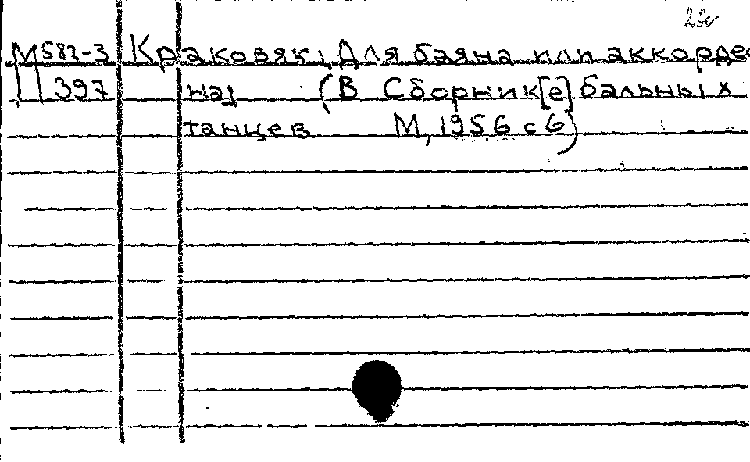 М582-3 Краковяк; Для баяна или аккордео
397 на; (В Сборник[е] бальных
танцев М, 1956 с 6)